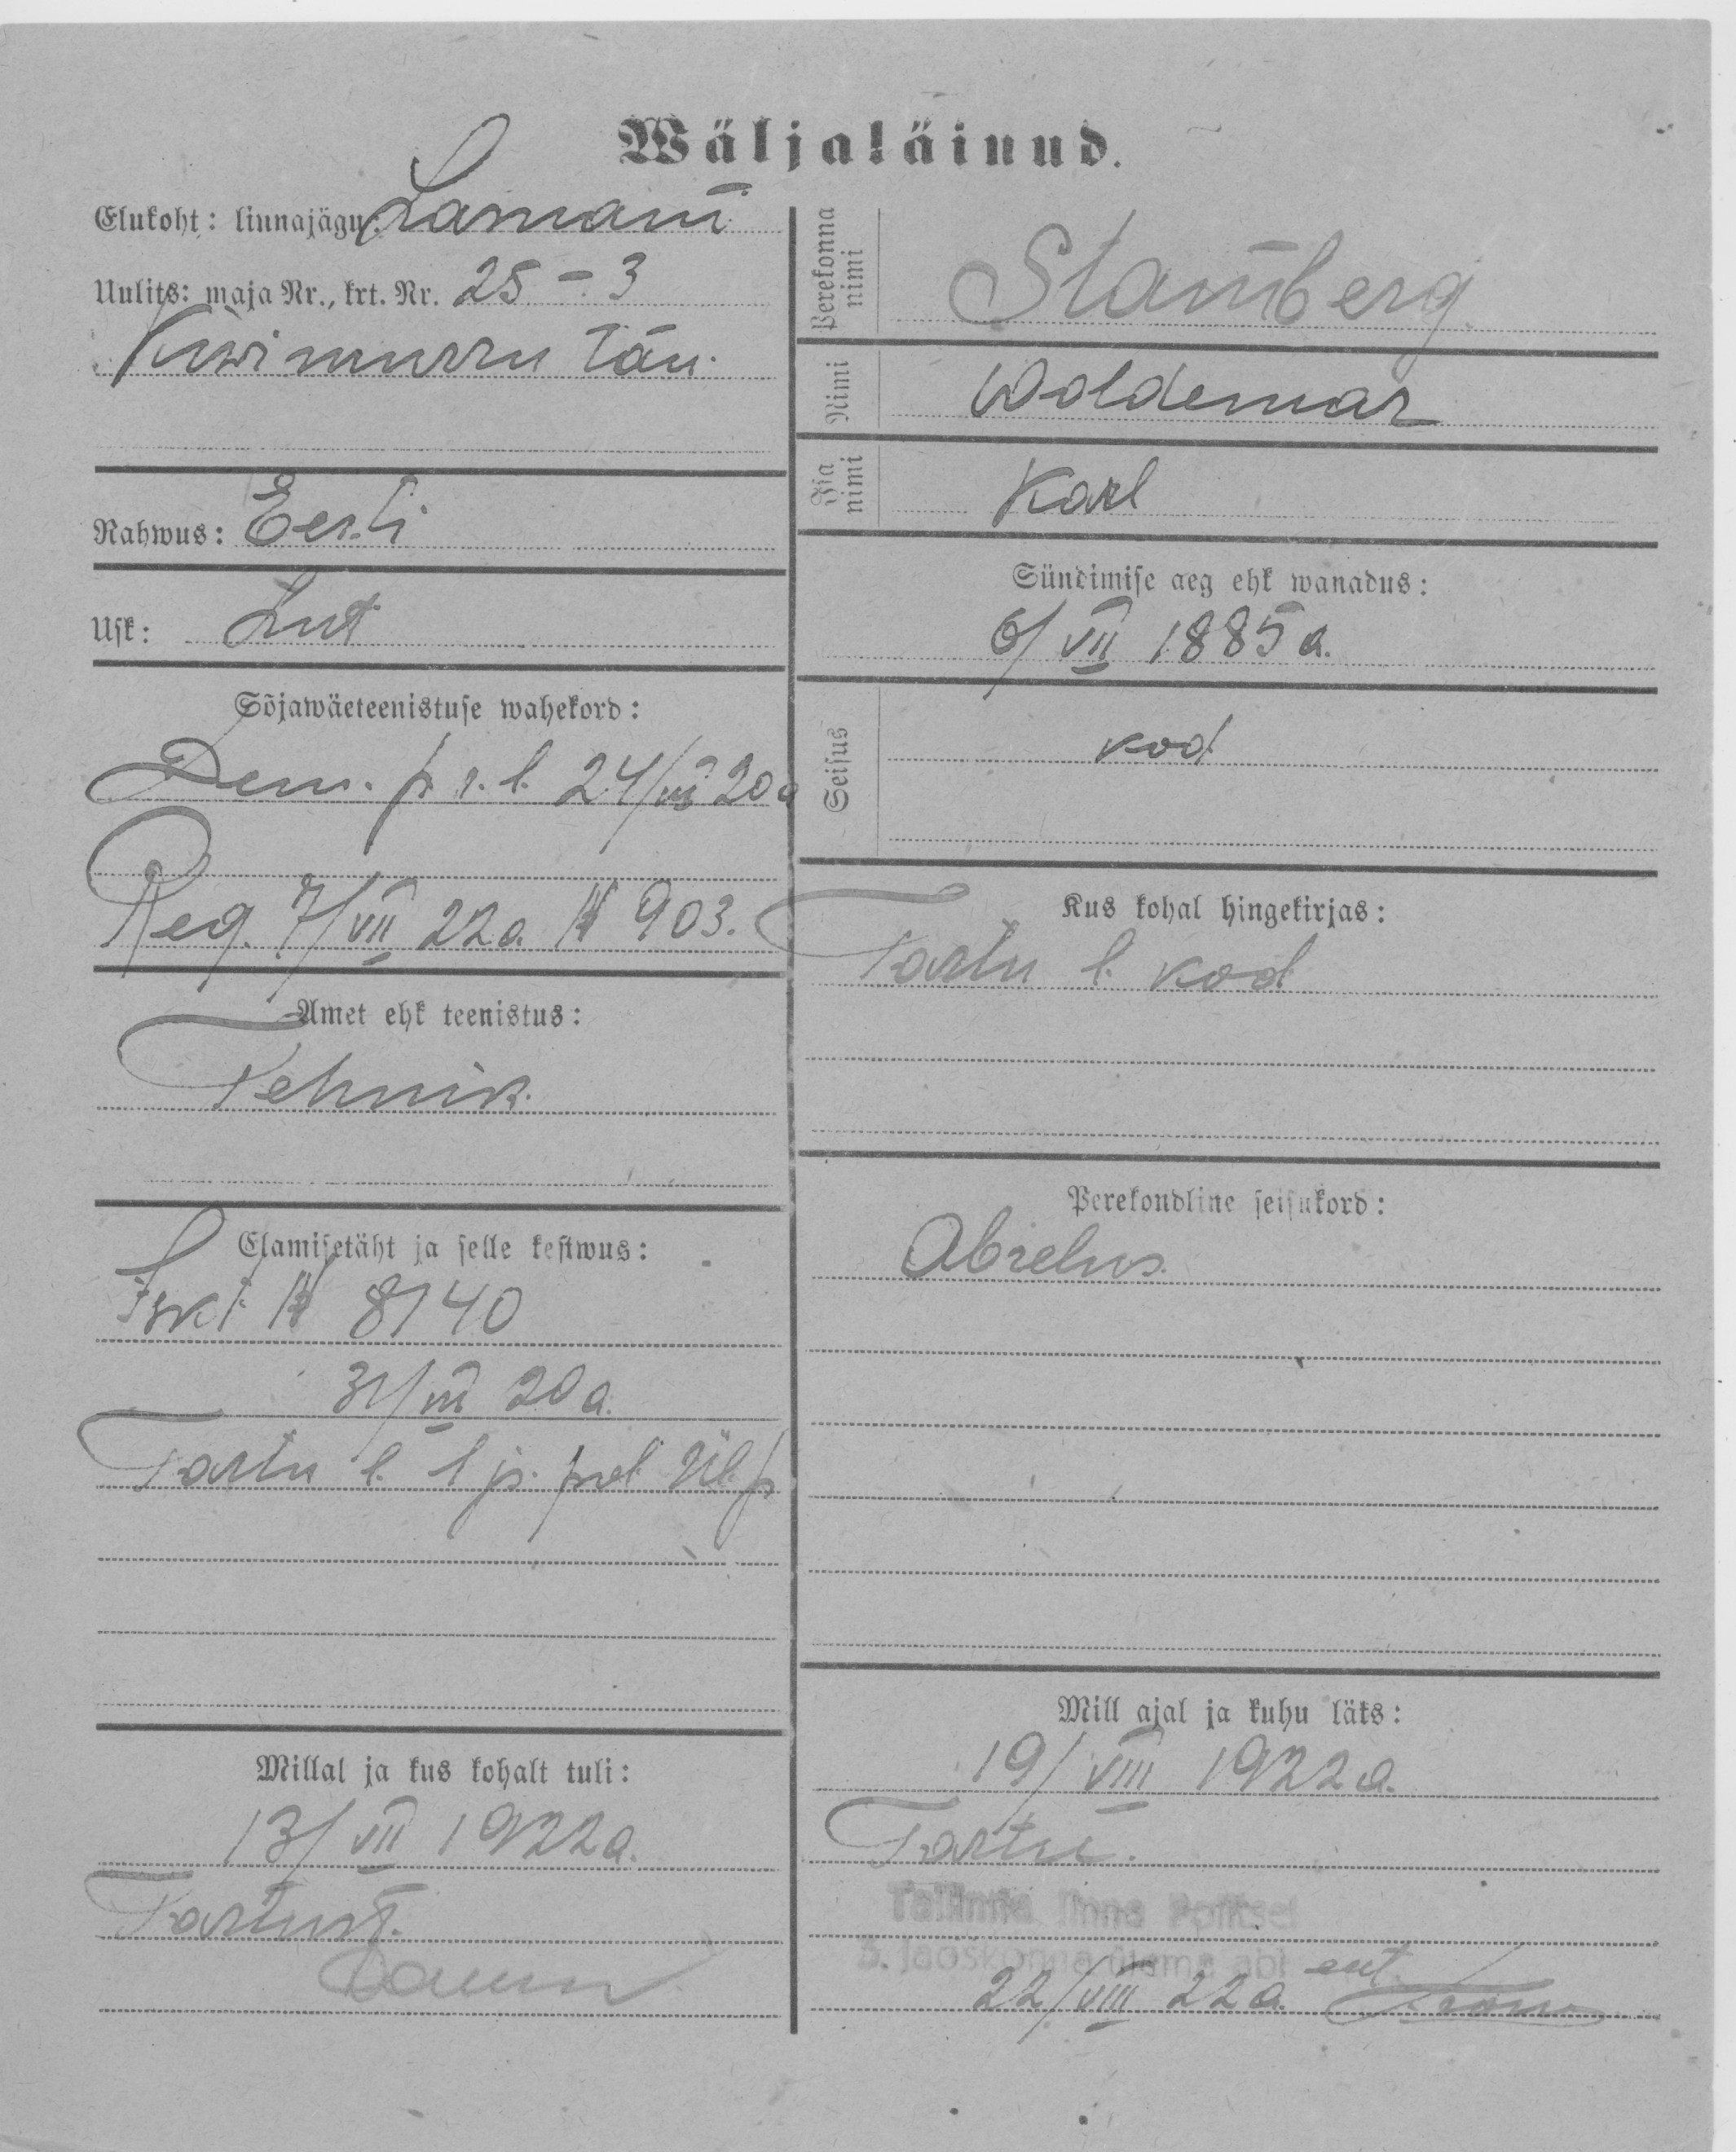 Wäljaläinud.
Elukoht: linnajagu: Lasnam
Uulits: maja Nr., krt. Nr. 25 – 3
Kiwimurru tän.
Rahwus: Eesti
Usk: Lut
Sõjawäeteenistuse wahekord:
Dem. p. r. l. 24/VIII 20 a
Reg. 7/VII 22 a. № 903.
Amet ehk teenistus:
Tehnik.
Elamisetäht ja selle kestwus:
Iskt № 8140
31/VIII 20 a.
Tartu l. 1 js. pol ül. p
Millal ja kus kohalt tuli:
13/VII 1922 a.
Tartust.
Perekonna nimi
Stamberg
Nimi
Woldemar
Isa nimi
Karl
Sündimise aeg ehk wanadus:
6/VII 1885 a.
Seisus
kod.
Kus kohal hingekirjas:
Tartu l. kod.
Perekondline seisukord:
Abielus.
Mill ajal ja kuhu läks:
19/VIII 1922 a.
Tartu.
Tallinna linna Politsei
3. jaoskonna ülema abi
22/VIII 22 a.